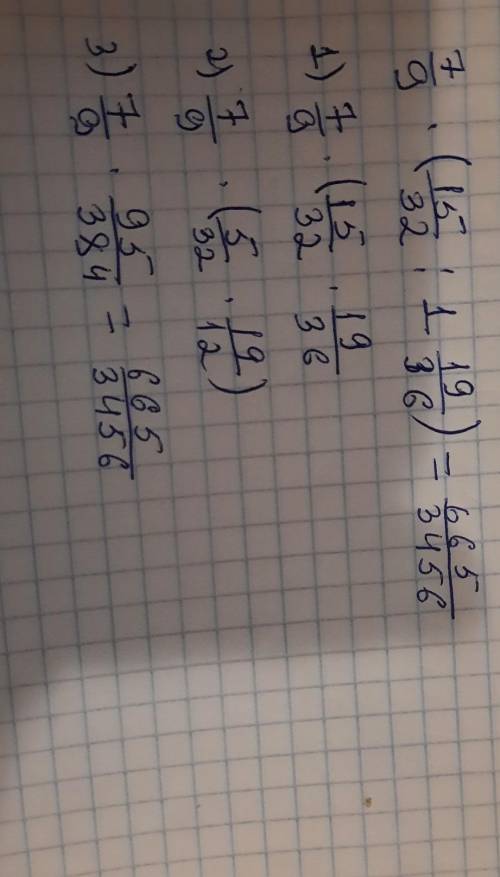 7/9 · (15/32 : 1 19/36) = 665/3456
1) 7/9 · (15/32 · 19/36
2) 7/9 · (5/32 · 19/12)
3) 7/9 · 95/384 = 665/3456